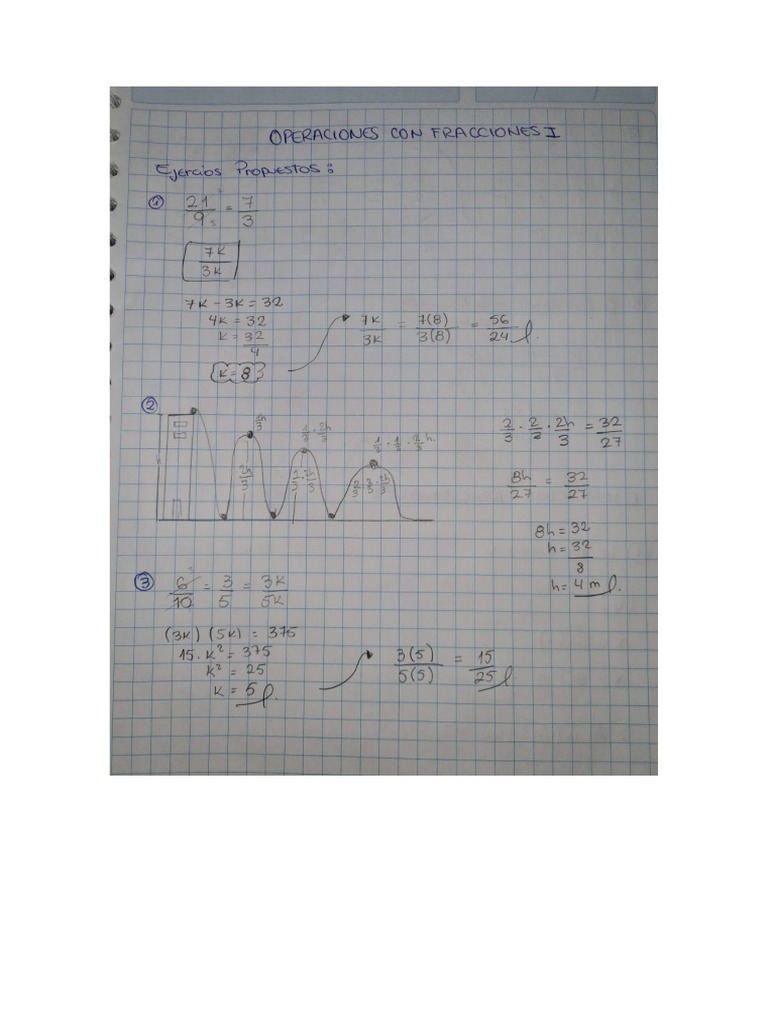 OPERACIONES CON FRACCIONES I
Ejercios Propuestos:
① 21/9 = 7/3
7k/3k
7k - 3k = 32
4k = 32
k = 32/4
k = 8
7k/3k = 7(8)/3(8) = 56/24
②
2h/3
2h/3
h
2/3 · 2/2 · 2h/3 = 32/27
8h/27 = 32/27
8h = 32
h = 32/8
h = 4 m
③ 6/10 = 3/5 = 3k/5k
(3k) (5k) = 375
15 · k² = 375
k² = 25
k = 5
3(5)/5(5) = 15/25